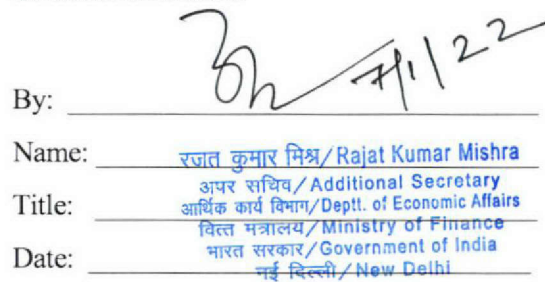 7/1/22
By:
Name: रजत कुमार मिश्र/Rajat Kumar Mishra
अपर सचिव/Additional Secretary
Title: आर्थिक कार्य विभाग/Deptt. of Economic Affairs
वित्त मंत्रालय/Ministry of Finance
Date: भारत सरकार/Government of India
नई दिल्ली/New Delhi